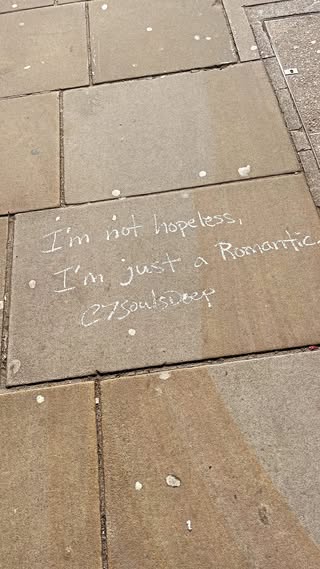 I'm not hopeless,
I'm just a Romantic.
@7SoulsDeep